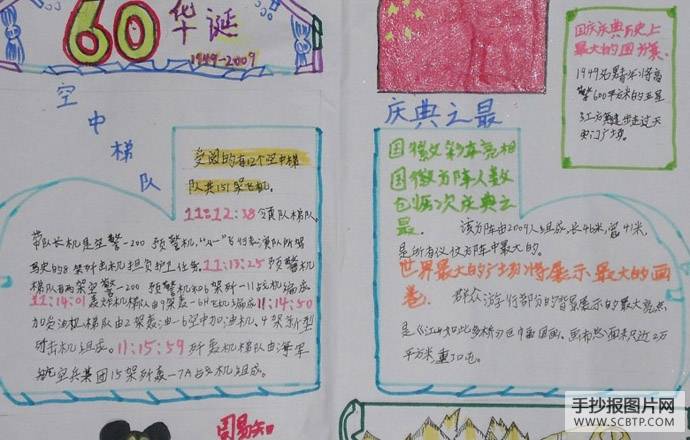 60
华诞
1949-2009
空中梯队
受阅的有12个空中梯
队共151架飞机.
11:12:38 领队梯队.
带队长机是空警-200 预警机,
驾的8架歼击机担负护卫任务. 11:13:25 预警机
梯队由两架空警-200 预警机和6架歼-11战机编成.
11:14:01 轰炸机梯队由9架轰-6H飞机编成 11:14:50
加受油机梯队由2架轰油-6空中加油机, 4架新型
歼击机组成. 11:15:59 歼轰机梯队由海军
航空兵集团15架歼轰-7A战机组成.
国庆庆典历史上
最大的国旗.
1949名青年将高
擎600平方米的五星
红旗走过天
安门广场.
庆典之最
国徽彩车亮相
国徽方阵人数
也归次庆典之
最.
该方阵由2009人组成,长46米,宽41米,
是所有仪仗方阵中最大的.
世界最大的广场将展示最大的画
卷.
群众游行部分的背景展示的最大亮点
是《江山如此多娇》巨幅国画.画布总面积近2万
平方米,重10吨.
手抄报图片网
WWW.SCBTP.COM